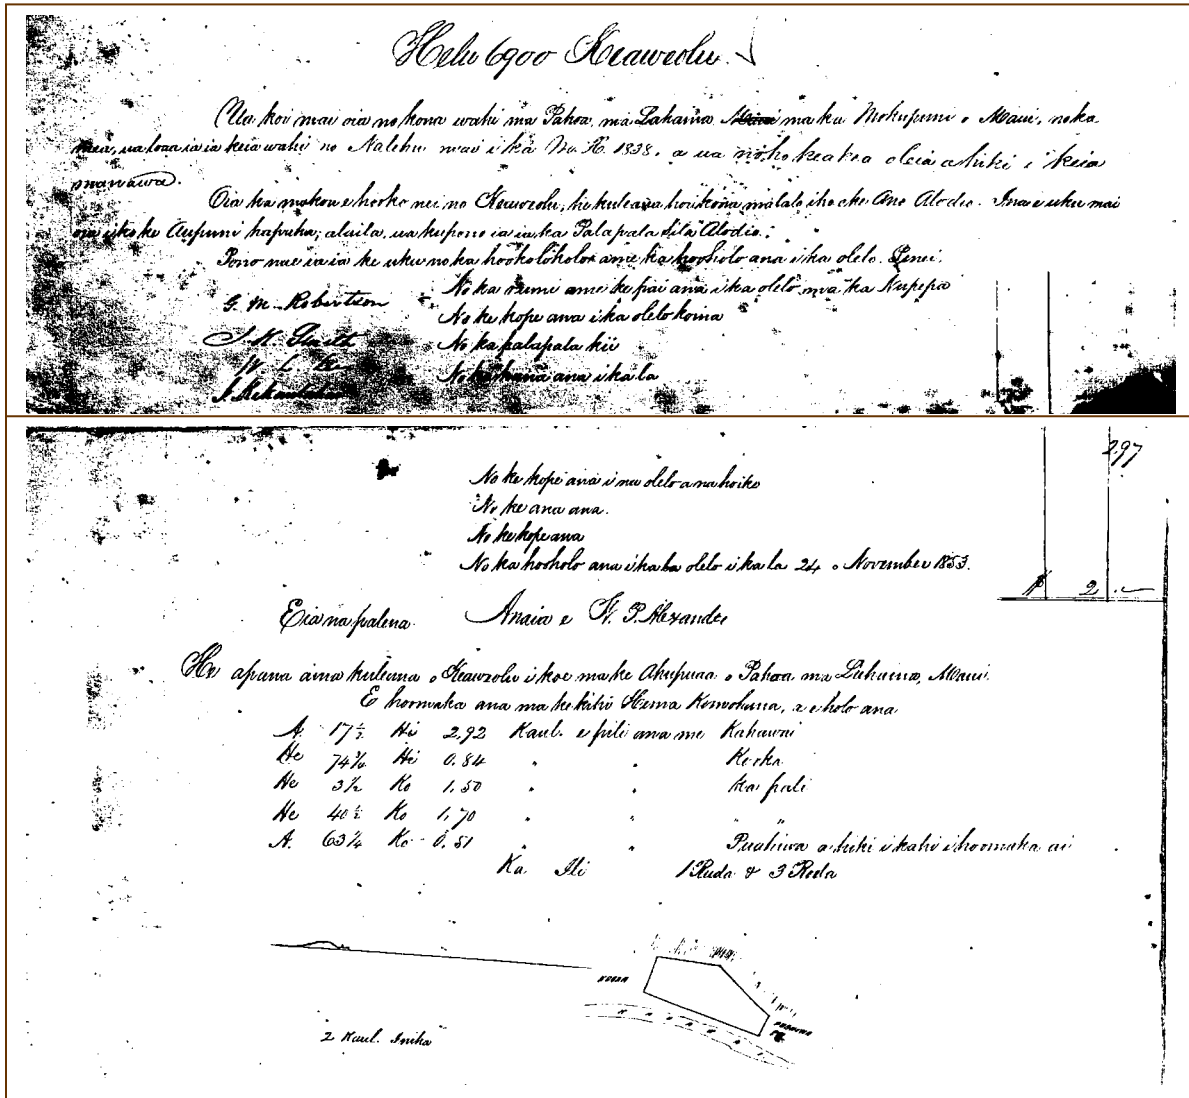 Helu 6900 Keaweolu.
Ua koi mai oia no kona wahi ma Pahoa, ma Lahaina ma ka Mokupuni o Maui, no ka
mea, ua loaa ia ia keia wahi no Nalehu mai i ka M. H. 1838. a ua noho keakea oleia a hiki i keia
manawa.
Oia ka makou e hooko nei no Keaweolu, he kuleana hoi kona malalo iho o ke Ano Alodio. Ina i uku mai
oia i ko ke Aupuni hapuha; alaila, ua kupono ia ia ka Palapala Sila Alodio.
Pono nae ia ia ke uku no ka hookolokolo ame ka hooholo ana i ka olelo. Penei.
No ka rumi ame ke pai ana i ka olelo ma ka Nupepa
G. M. Robertson
No ke kope ana i ka olelo koina
J. H. Smith
No ka palapala kii
W. L. Lee
No ka hana ana i ka la
J. Kekaulahao
297
No ke kope ana i na olelo a na hoike
No ke ana ana.
No ke kope ana
No ka hooholo ana i ka ba olelo i ka la 24 o November 1853.
$ 2 . —
Eia na palena. Anaia e W. P. Alexander
He apana aina kuleana o Keaweolu i koe ma ke Ahupuaa o Pahoa ma Lahaina, Maui.
E hoomaka ana ma ke kihi Hema Komohana, a e holo ana
A. 17½ Hi 2,92 Kaul. e pili ana me Kahawai
He 74¾ Hi 0.84 " " Kooka
He 3½ Ko 1,50 " " Ka pali
He 40½ Ko 1,70 " " "
A. 63¼ Ko 0.51 " " Puahiwa a hiki i kahi i hoomaka ai
Ka Ili 1 Ruda & 3 Roda
KOOKA
2 Kaul. Iniha